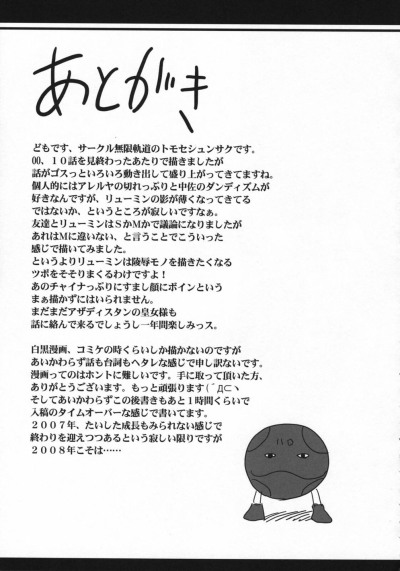 あとがき
どもです、サークル無限軌道のトモセシュンサクです。
00、10話を見終わったあたりで描きましたが
話がゴスっといろいろ動き出して盛り上がってきてますね。
個人的にはアレルヤの切れっぷりと中佐のダンディズムが
好きなんですが、リューミンの影が薄くなってきてる
ではないか、というところが寂しいですなぁ。
友達とリューミンはSかMかで議論になりましたが
あれはMに違いない、と言うことでこういった
感じで描いてみました。
というよりリューミンは陵辱モノを描きたくなる
ツボをそそりまくるわけですよ！
あのチャイナっぷりにすまし顔にボインという
まぁ描かずにはいられません。
まだまだアザディスタンの皇女様も
話に絡んで来るでしょうし一年間楽しみっス。
白黒漫画、コミケの時くらいしか描かないのですが
あいかわらず話も台詞もヘタレな感じで申し訳ないです。
漫画ってのはホントに難しいです。手に取って頂いた方、
ありがとうございます。もっと頑張ります(´Д⊂ヽ
そしてあいかわらずこの後書きもあと１時間くらいで
入稿のタイムオーバーな感じで書いてます。
２００７年、たいした成長もみられない感じで
終わりを迎えつつあるという寂しい限りですが
２００８年こそは……
ハロ